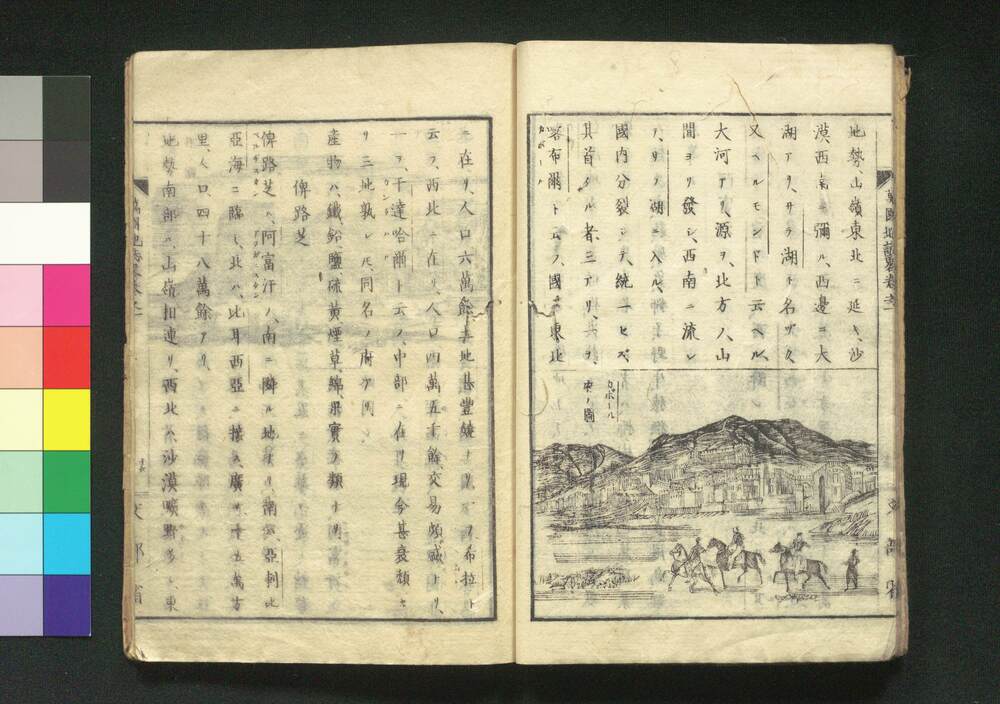 地勢、山嶺東北ニ延キ、沙
漠西南ニ彌ル、西邊ニ大
湖アリ、サラ湖ト名ヅク、
又ヘルモンドト云ヘル、
大河アリ、源ヲ、北方ノ、山
間ヨリ發シ、西南ニ流レ
テ、サラ湖ニ入ル、
國内分裂シテ、統一セズ、
其首タル者三アリ、
喀布爾ト云フ、國ノ東北
カボール
府ノ圖
ニ在リ、人口六萬餘、其地甚豐饒ナリ、一ヲ希拉ト
云フ、西北ニ在リ、人口四萬五千餘、交易頗盛ナリ、
一ヲ、干達哈爾ト云フ、中部ニ、在リ、現今甚衰頽セ
リ、三地孰レモ、同名ノ府アリ、
産物ハ、鐵、鉛、鹽、硫黄、煙草、綿、果實ノ類ナリ、
俾路芝
俾路芝ハ、阿富汗ノ、南ニ隣ル地ナリ、南ハ、亞剌比
亞海ニ臨ミ、北ハ、比耳西亞ニ接ス、廣サ十五萬方
里、人口四十八萬餘アリ、
地勢南部ハ、山嶺相連リ、西北ハ沙漠曠野多シ、東
文部省